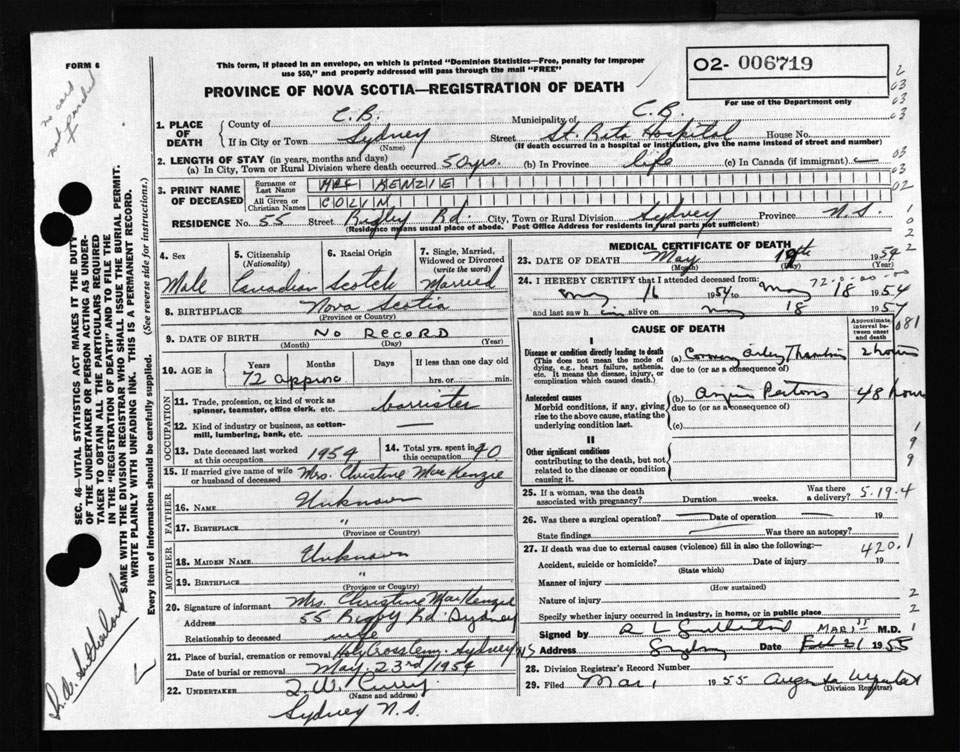 FORM 6
This form, if placed in an envelope, on which is printed "Dominion Statistics—Free, penalty for improper
use $50," and properly addressed will pass through the mail "FREE"
02- 006719
For use of the Department only
PROVINCE OF NOVA SCOTIA—REGISTRATION OF DEATH
1. PLACE OF DEATH
County of C.B. Municipality of C.B.
If in City or Town Sydney Street St. Rita Hospital House No.
(Name) (If death occurred in a hospital or institution, give the name instead of street and number)
2. LENGTH OF STAY (in years, months and days)
(a) In City, Town or Rural Division where death occurred 50 yrs. (b) In Province life (c) In Canada (if immigrant) —
3. PRINT NAME OF DECEASED
Surname or Last Name MAC KENZIE
All Given or Christian Names COLIN
RESIDENCE No. 55 Street Rigby Rd. City, Town or Rural Division Sydney Province N.S.
(Residence means usual place of abode. Post Office Address for residents in rural parts not sufficient)
4. Sex
Male
5. Citizenship
(Nationality)
Canadian
6. Racial Origin
Scotch
7. Single, Married,
Widowed or Divorced
(write the word)
Married
8. BIRTHPLACE Nova Scotia
(Province or Country)
9. DATE OF BIRTH No RECORD
(Month) (Day) (Year)
10. AGE in
Years Months Days If less than one day old
72 approx hrs. or min.
OCCUPATION
11. Trade, profession, or kind of work as
spinner, teamster, office clerk, etc. barrister
12. Kind of industry or business, as cotton-
mill, lumbering, bank, etc. —
13. Date deceased last worked at this occupation 1954
14. Total yrs. spent in this occupation 40
15. If married give name of wife
or husband of deceased Mrs. Christine MacKenzie
FATHER
16. NAME Unknown
17. BIRTHPLACE "
(Province or Country)
MOTHER
18. MAIDEN NAME Unknown
19. BIRTHPLACE "
(Province or Country)
20. Signature of informant Mrs. Christine MacKenzie
Address 55 Rigby Rd. Sydney
Relationship to deceased wife
21. Place of burial, cremation or removal Holy Cross Cem. Sydney NS
Date of burial or removal May 23rd/1954
22. UNDERTAKER T.W. Curry
(Name and address)
Sydney N.S.
MEDICAL CERTIFICATE OF DEATH
23. DATE OF DEATH May 19th 1954
(Month) (Day) (Year)
24. I HEREBY CERTIFY that I attended deceased from:
May 16 1954 to May 18 1954
and last saw him alive on May 18 1954
CAUSE OF DEATH
Approximate interval between onset and death
I
Disease or condition directly leading to death
(This does not mean the mode of
dying, e.g., heart failure, asthenia,
etc. It means the disease, injury, or
complication which caused death.)
(a) Coronary Artery 2 hours
due to (or as a consequence of)
Antecedent causes
Morbid conditions, if any, giving
rise to the above cause, stating the
underlying condition last.
(b) Angina Pectoris 48 hours
due to (or as a consequence of)
(c)
II
Other significant conditions
contributing to the death, but not
related to the disease or condition
causing it.
25. If a woman, was the death
associated with pregnancy? Duration weeks. Was there a delivery? 5-19-4
26. Was there a surgical operation? Date of operation 19
State findings Was there an autopsy?
27. If death was due to external causes (violence) fill in also the following:—
420.1
Accident, suicide or homicide? Date of injury 19
(State which)
Manner of injury
(How sustained)
Nature of injury
Specify whether injury occurred in industry, in home, or in public place
Signed by R L Sutherland M.D.
Address Date 1955
28. Division Registrar's Record Number
29. Filed Mar 1 1955
(Division Registrar)
SEC. 46—VITAL STATISTICS ACT MAKES IT THE DUTY
OF THE UNDERTAKER OR PERSON ACTING AS UNDER-
TAKER TO OBTAIN ALL THE PARTICULARS REQUIRED
IN THE "REGISTRATION OF DEATH" AND TO FILE THE
SAME WITH THE DIVISION REGISTRAR WHO SHALL ISSUE THE BURIAL PERMIT.
WRITE PLAINLY WITH UNFADING INK. THIS IS A PERMANENT RECORD.
Every item of information should be carefully supplied. (See reverse side for instructions.)